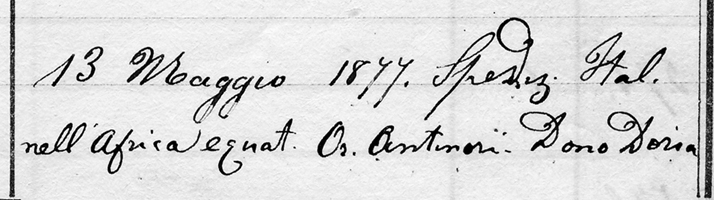 13 Maggio 1877. Spediz. Ital.
nell'Africa equat. Or. Antinori. Dono Doria